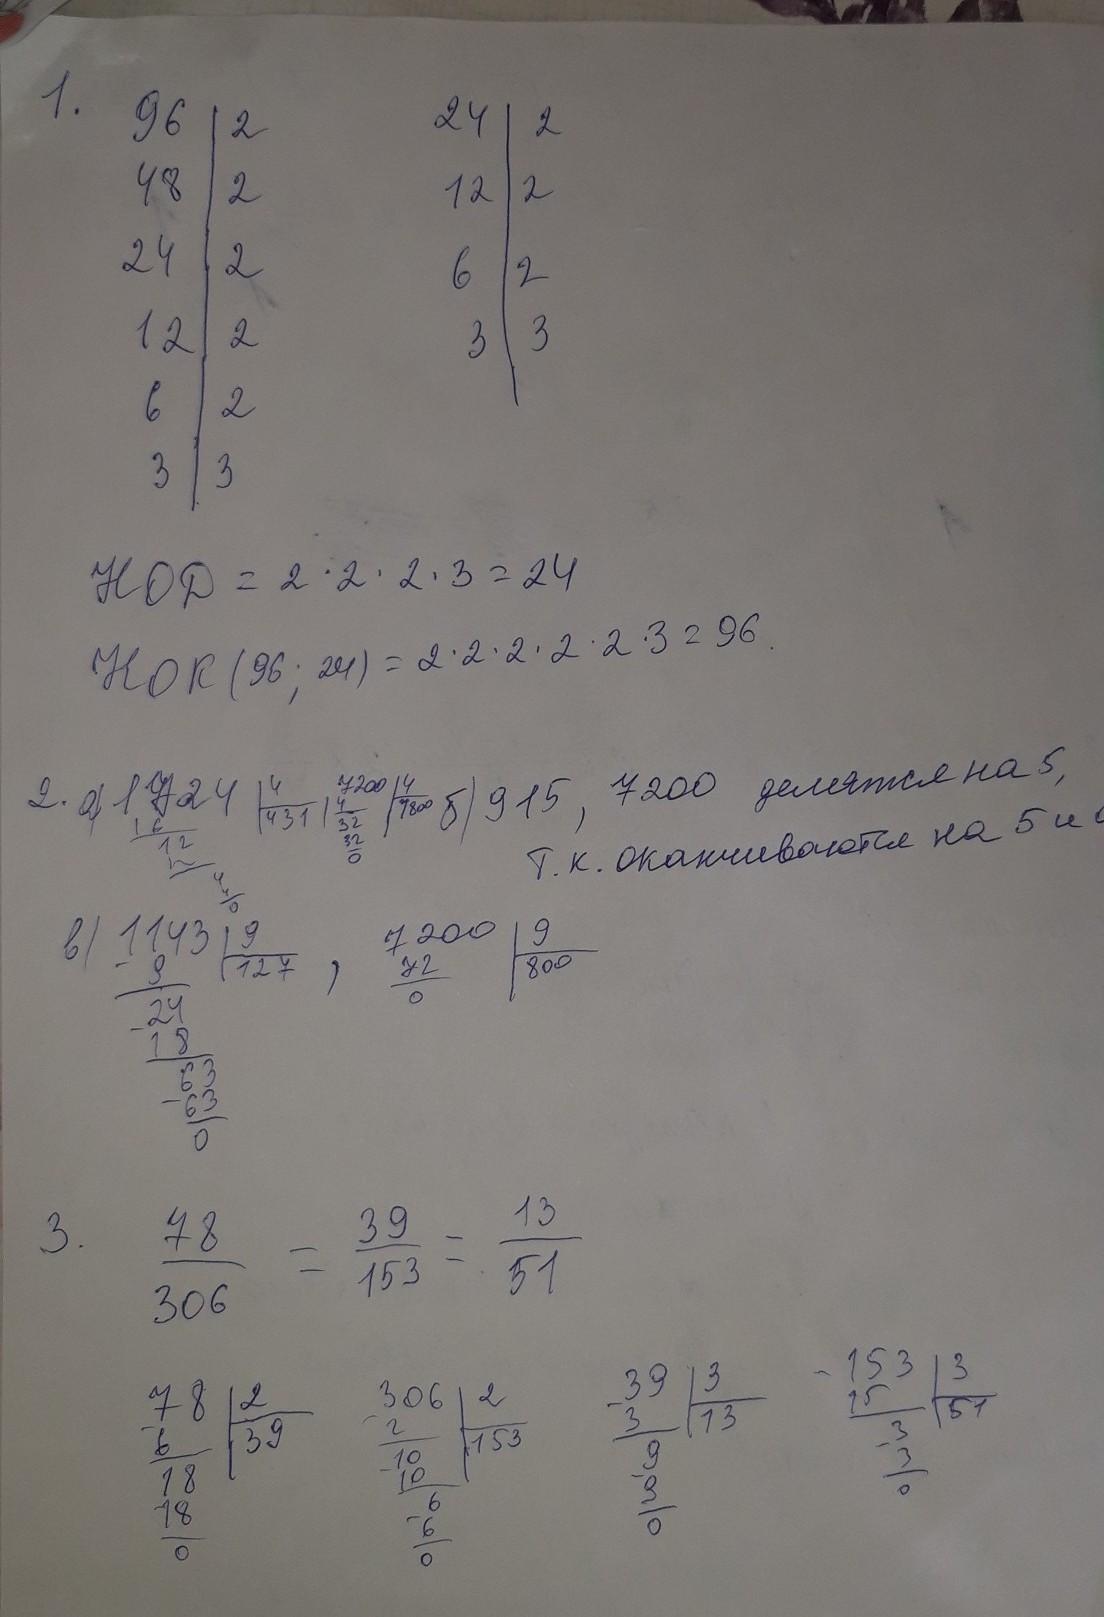 1.
96 | 2
48 | 2
24 | 2
12 | 2
6 | 2
3 | 3
24 | 2
12 | 2
6 | 2
3 | 3
НОД = 2 · 2 · 2 · 3 = 24
НОК (96; 24) = 2 · 2 · 2 · 2 · 2 · 3 = 96.
2. а) 1724 | 4
431
16
12
12
4
4
0
7200 | 4
1800
4
32
32
0
б) 915, 7200 делятся на 5,
т.к. оканчиваются на 5 и
в) 1143 | 9
127 ,
- 9
24
- 18
63
- 63
0
7200 | 9
800
72
0
3. 78/306 = 39/153 = 13/51
78 | 2
39
- 6
18
- 18
0
306 | 2
153
- 2
10
- 10
6
- 6
0
39 | 3
13
- 3
9
- 9
0
153 | 3
51
- 15
3
- 3
0